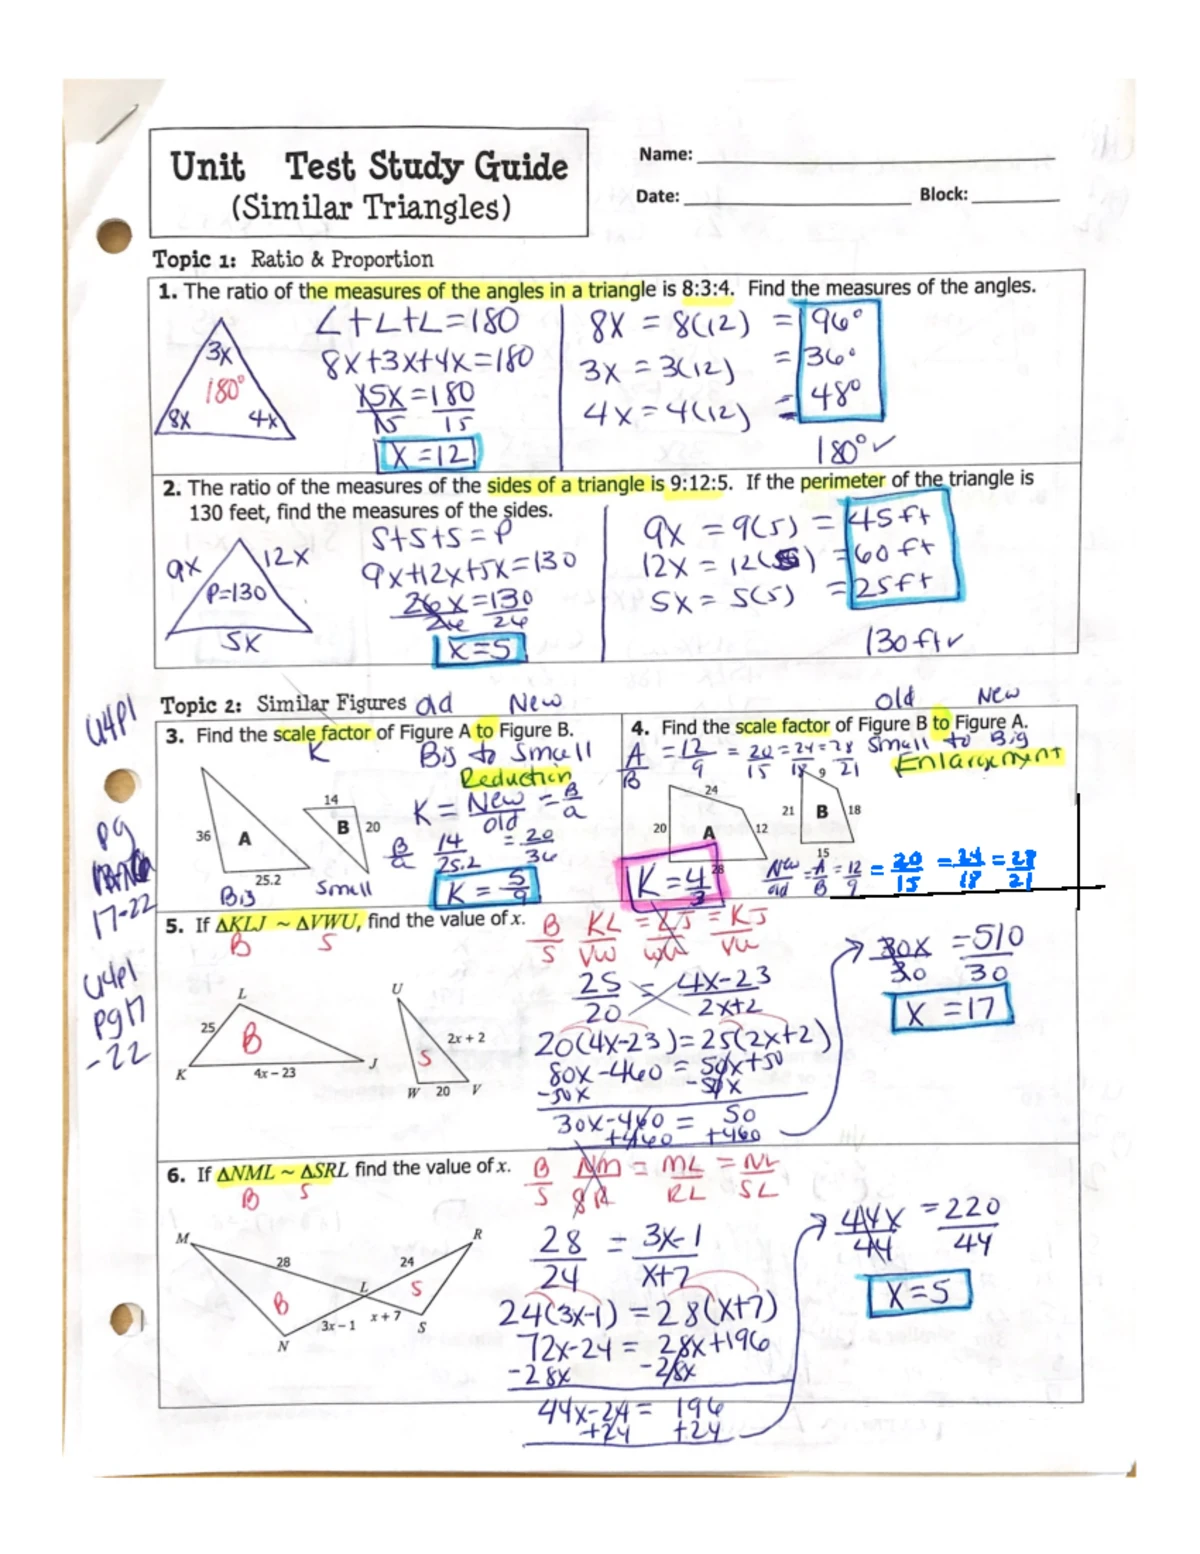 Unit Test Study Guide
(Similar Triangles)
Name:
Date: Block:
Topic 1: Ratio & Proportion
1. The ratio of the measures of the angles in a triangle is 8:3:4. Find the measures of the angles.
3x
180°
8x 4x
∠+∠+∠=180
8x+3x+4x=180
15x=180
15 15
x=12
8x = 8(12) = 96°
3x = 3(12) = 36°
4x = 4(12) = 48°
180° ✓
2. The ratio of the measures of the sides of a triangle is 9:12:5. If the perimeter of the triangle is
130 feet, find the measures of the sides.
9x 12x
P=130
5x
S+S+S=P
9x+12x+5x=130
26x=130
26 26
x=5
9x = 9(5) = 45ft
12x = 12(5) = 60ft
5x = 5(5) = 25ft
130ft ✓
Topic 2: Similar Figures old New
old New
U4P1
pg
17-22
U4P1
pg17
-22
3. Find the scale factor of Figure A to Figure B.
K Big to Small
Reduction
14
36 A B 20
25.2
Big Small
K = New = B
old a
B 14 = 20
a 25.2 36
K = 5
9
4. Find the scale factor of Figure B to Figure A.
A = 12 = 20 = 24 = 28 Small to Big
B 9 15 18 21
Enlargement
24
20 A 12
28
9
21 B 18
15
K = 4
3
New = A = 12 = 20 = 24 = 28
old B 9 15 18 21
5. If ΔKLJ ~ ΔVWU, find the value of x.
B S
L
25 B
K 4x – 23 J
U
2x + 2
S
W 20 V
B KL = LJ = KJ
S VW WU VU
25 = 4x-23
20 2x+2
20(4x-23)=25(2x+2)
80x-460 = 50x+50
-50x -50x
30x-460 = 50
+460 +460
30x = 510
30 30
x = 17
6. If ΔNML ~ ΔSRL find the value of x.
B S
M R
28 24
L
B S
3x – 1 x + 7 S
N
B NM = ML = NL
S SR RL SL
28 = 3x-1
24 x+7
24(3x-1) = 28(x+7)
72x-24 = 28x+196
-28x -28x
44x-24 = 196
+24 +24
44x = 220
44 44
x=5